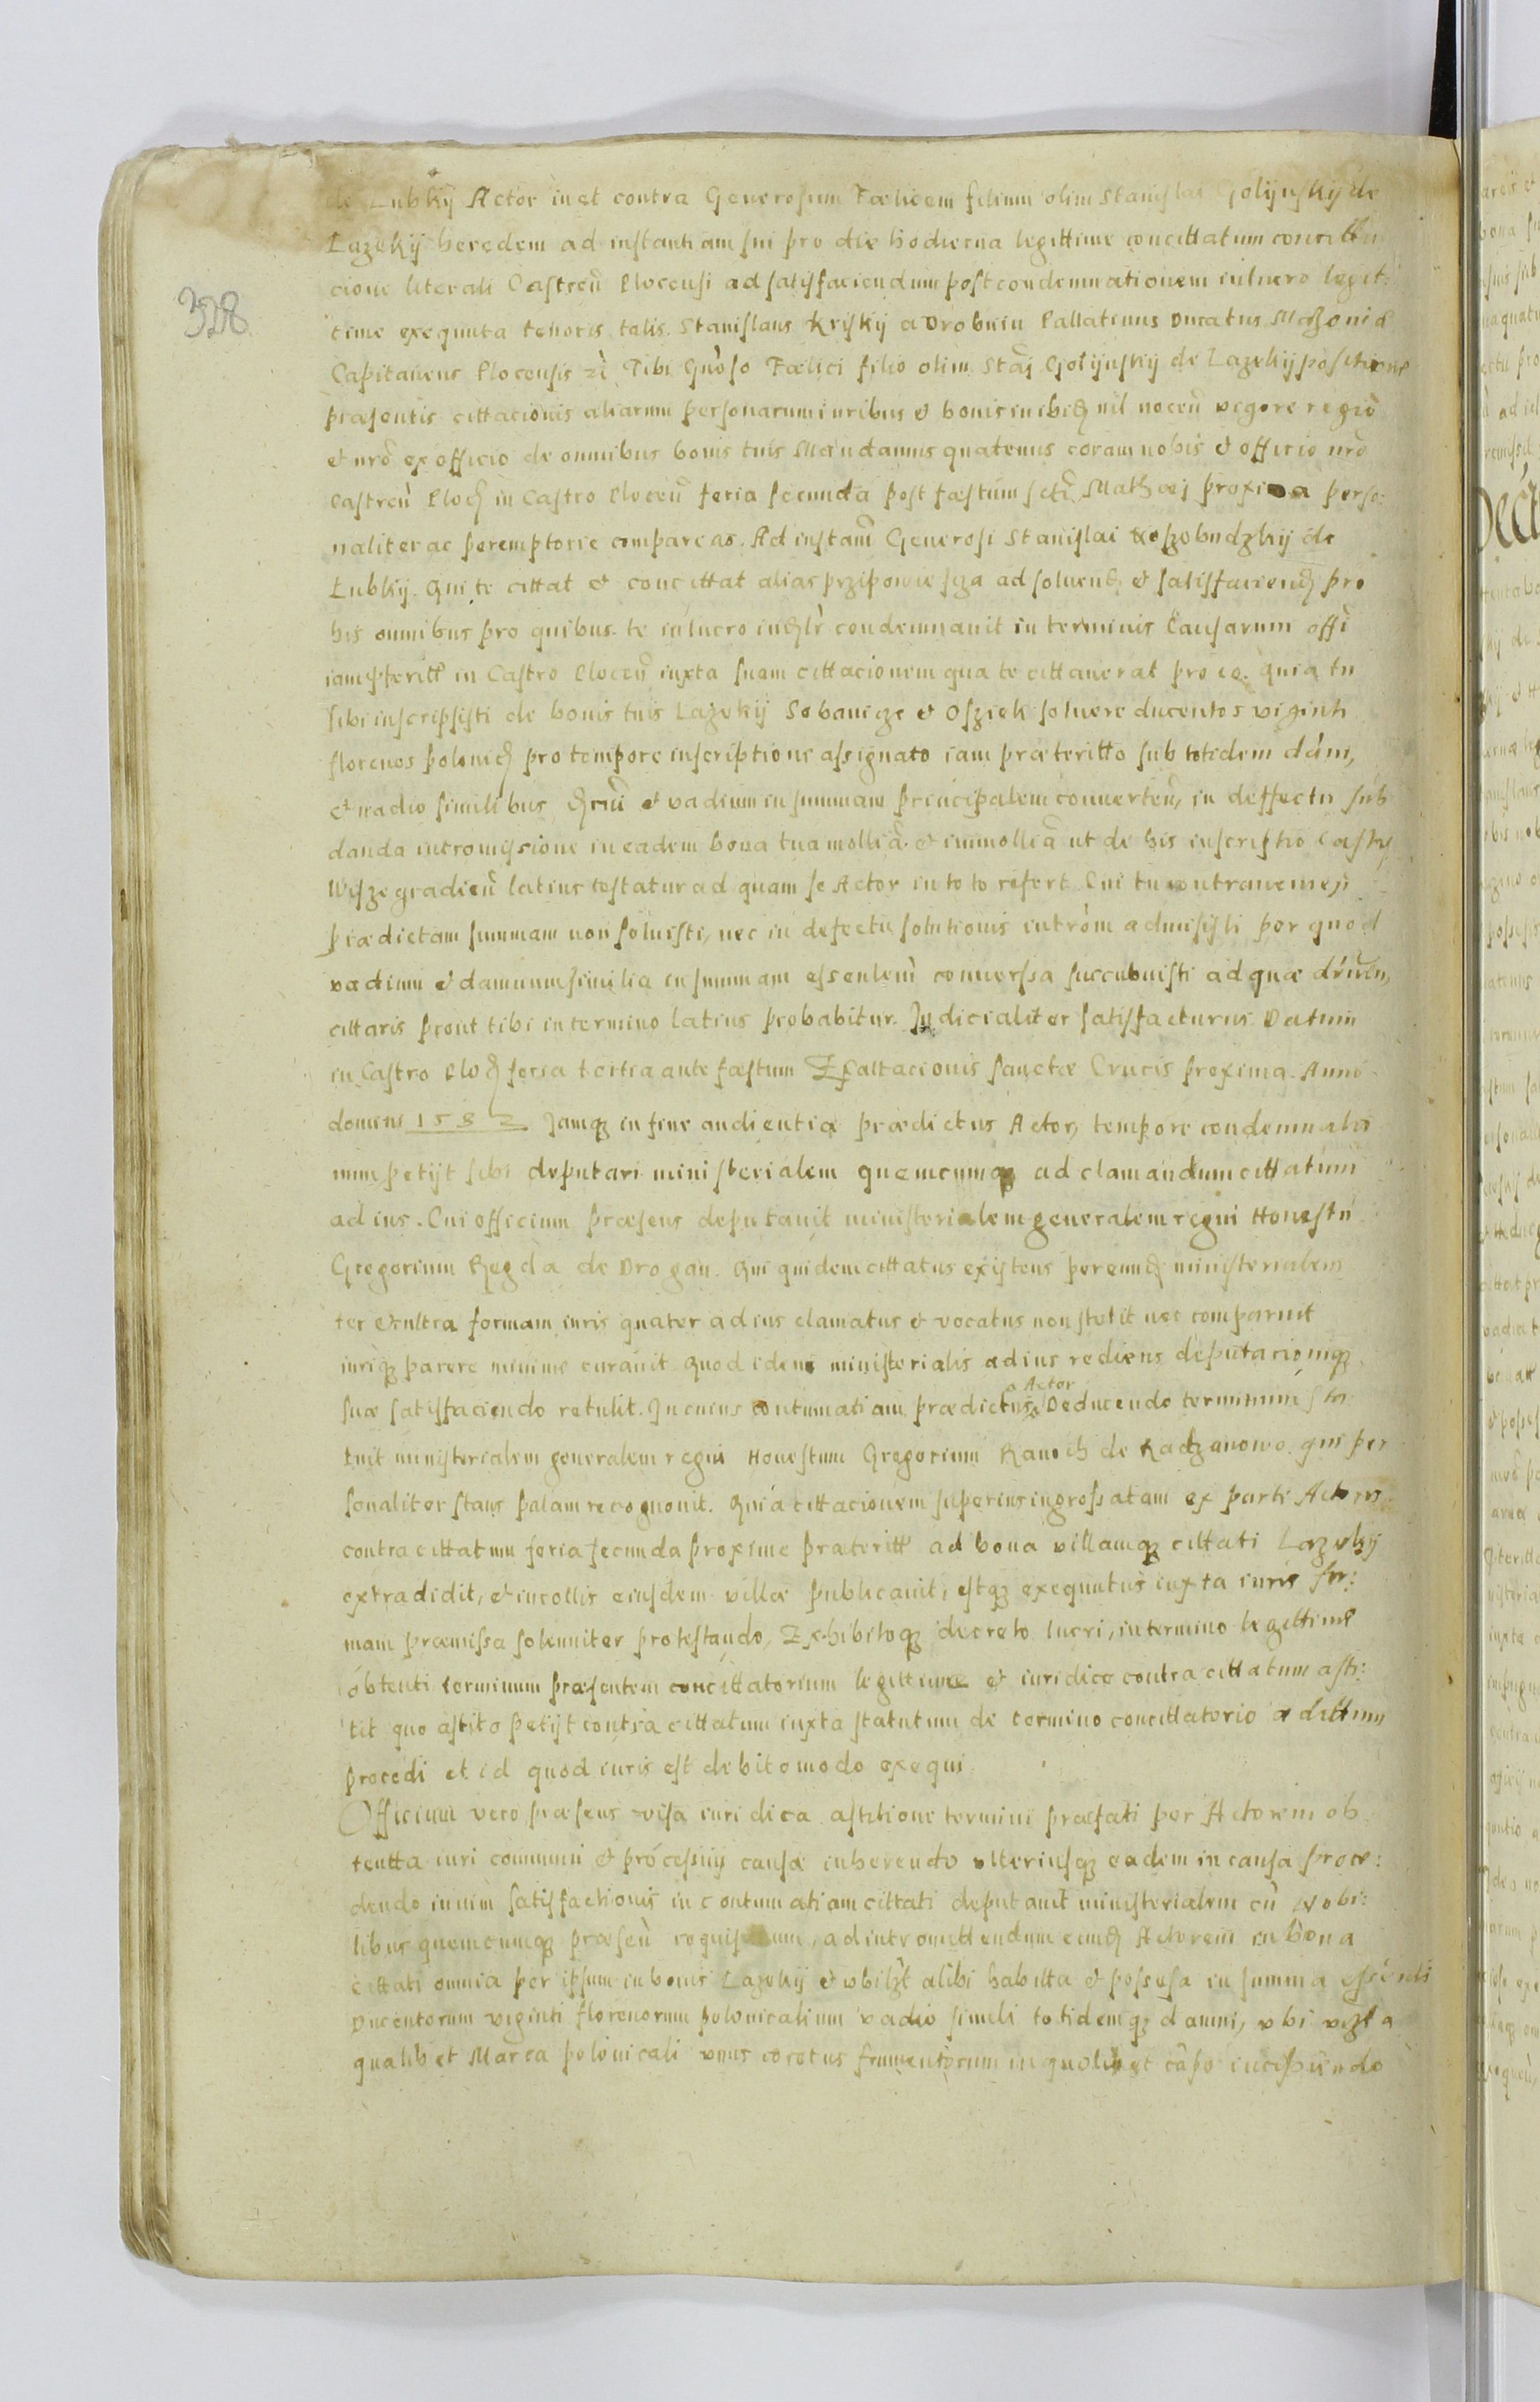 de Lubkÿ Actor in et contra Generosum Fœlicem filium olim Stanislai Golÿnskÿ de
Lazekÿ heredem ad instantiam sui pro die hodierna legittime concittatum concitta
cione literali Castren̄ Plocensi ad satisfaciendum post condemnationem in lucro legit:
time exequuta tenoris talis. Stanislaus Kriskÿ a Drobnin Pallatinus Ducatus Mazoniæ
Capitaneus Plocensis Tibi Gn̄oso Fœlici filio olim Stāj Golÿnskÿ de Lazekÿ positione
præsentis cittacionis aliarum personarum iuribus et bonis inibiq nil nocen̄ vigore regio
et nr̄o ex officio de omnibus bonis tuis Mandamus quatenus coram nobis et officio nr̄o
castren̄ Ploc in Castro Plocen̄ feria secunda post fæstum scti Mathæj proxima perso:
naliter ac peremptorie compareas. Ad instan̄ Generosi Stanislai Koszobudzkÿ de
Lubkÿ. Qui te cittat et concittat alias przipowiesza ad soluend et satisfaciend pro
his omnibus pro quibus te in lucro condemnauit in terminis Causarum offi
iam præteritt in Castro Plocen̄ iuxta suam cittacionem qua te cittauerat pro eo. quia tu
sibi inscripsisti de bonis tuis Lazekÿ Sobanicze et Osziek soluere ducentos viginti
florenos polonic pro tempore inscriptione assignato iam præteritto sub totidem dam,
et vadio similibus et vadium in summam principalem conuerten̄, in deffectu sub
danda intromissione in eadem bona tua mollia et immollia ut de his inscriptio Castr
Wiszegradien̄ latius testatur ad quam se Actor in toto refert. Cui tu contraueniens
prædictam summam non soluisti, nec in defectu solutionis introm admisisti per quod
vadium et damnum similia in summam essenlem conuerssa succubuisti ad quæ
cittaris prout tibi in termino latius probabitur. Judicialiter satisfacturus. Datum
in Castro Ploc feria tertia ante fæstum Exaltacionis sanctæ Crucis proxima. Anno
domini 1582 Jamq in fine audientiæ prædictus Actor, tempore condemnatio
num petijt sibi deputari ministerialem quemcumq ad clamandum cittatum
ad ius. Cui officium præsens deputauit ministerialem generalem regni Honestū
Gregorium de Drogan. Qui quidem cittatus existens per eund ministerialem
ter et ultra formam iuris quater ad ius clamatus et vocatus non stetit nec comparuit
iuriq parere minime curauit. Quod idem ministerialis ad ius rediens deputacioniq
suæ satisfaciendo retulit. In cuius contumatiam prædictus Actor Deducendo terminum sta
tuit ministerialem generalem regni Honestum Gregorium Ranoch de Radzanowo. qui per
sonaliter stans palam recognouit. Quia cittacionem superius ingrossatam ex parte Actoris
contra cittatum feria secunda proxime præteritt ad bona villamq cittati Lazekÿ
extradidit, et incollis eiusdem villæ publicauit, estq exequutus iuxta iuris for:
mam præmissa solenniter protestando, Exhibitoq decreto lucri, in termino legittime
obtenti terminum præsentem concittatorium legittime et iuridice contra cittatum asti:
tit quo astito petijt contra cittatum iuxta statutum de termino concittatorio ædittum
procedi et id quod iuris est debito modo exequi
Officium vero præsens visa iuridica astitione termini præfati per Actorem ob
tentta iuri communi et processui causæ inherendo vlteriusq eadem in causa proce:
dendo in vim satisfactionis in contumatiam cittati deputauit ministerialem cū Nobi:
libus quemcumq præsen̄ requisitum, ad intromittendum eund Actorem in bona
cittati omnia per ipsum in bonis Lazekÿ et vbilzt alibi habitta et possessa in summa essenti
Ducentorum viginti florenorum polonicalium vadio simili totidemq damni, vbi
qualibet Marca polonicali vnus coretus frumentorum in quolibet campo incipiendo